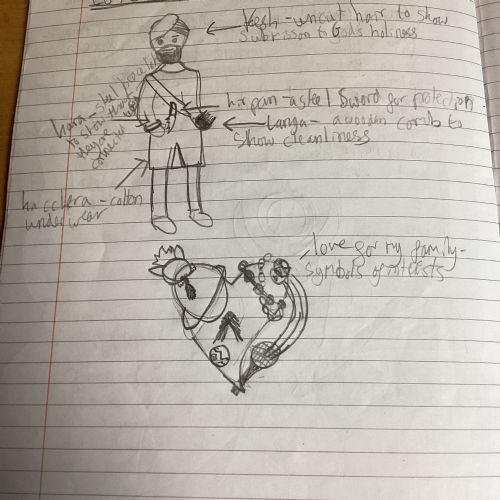 kesh - uncut hair to show
submisson to Gods holiness
kara - steel bracelet
to show that
they're
connected
kirpan - a steel sword for protection
kanga - a wooden comb to
show cleanliness
kacchera - cotton
underwear
love for my family -
symbols of intrests